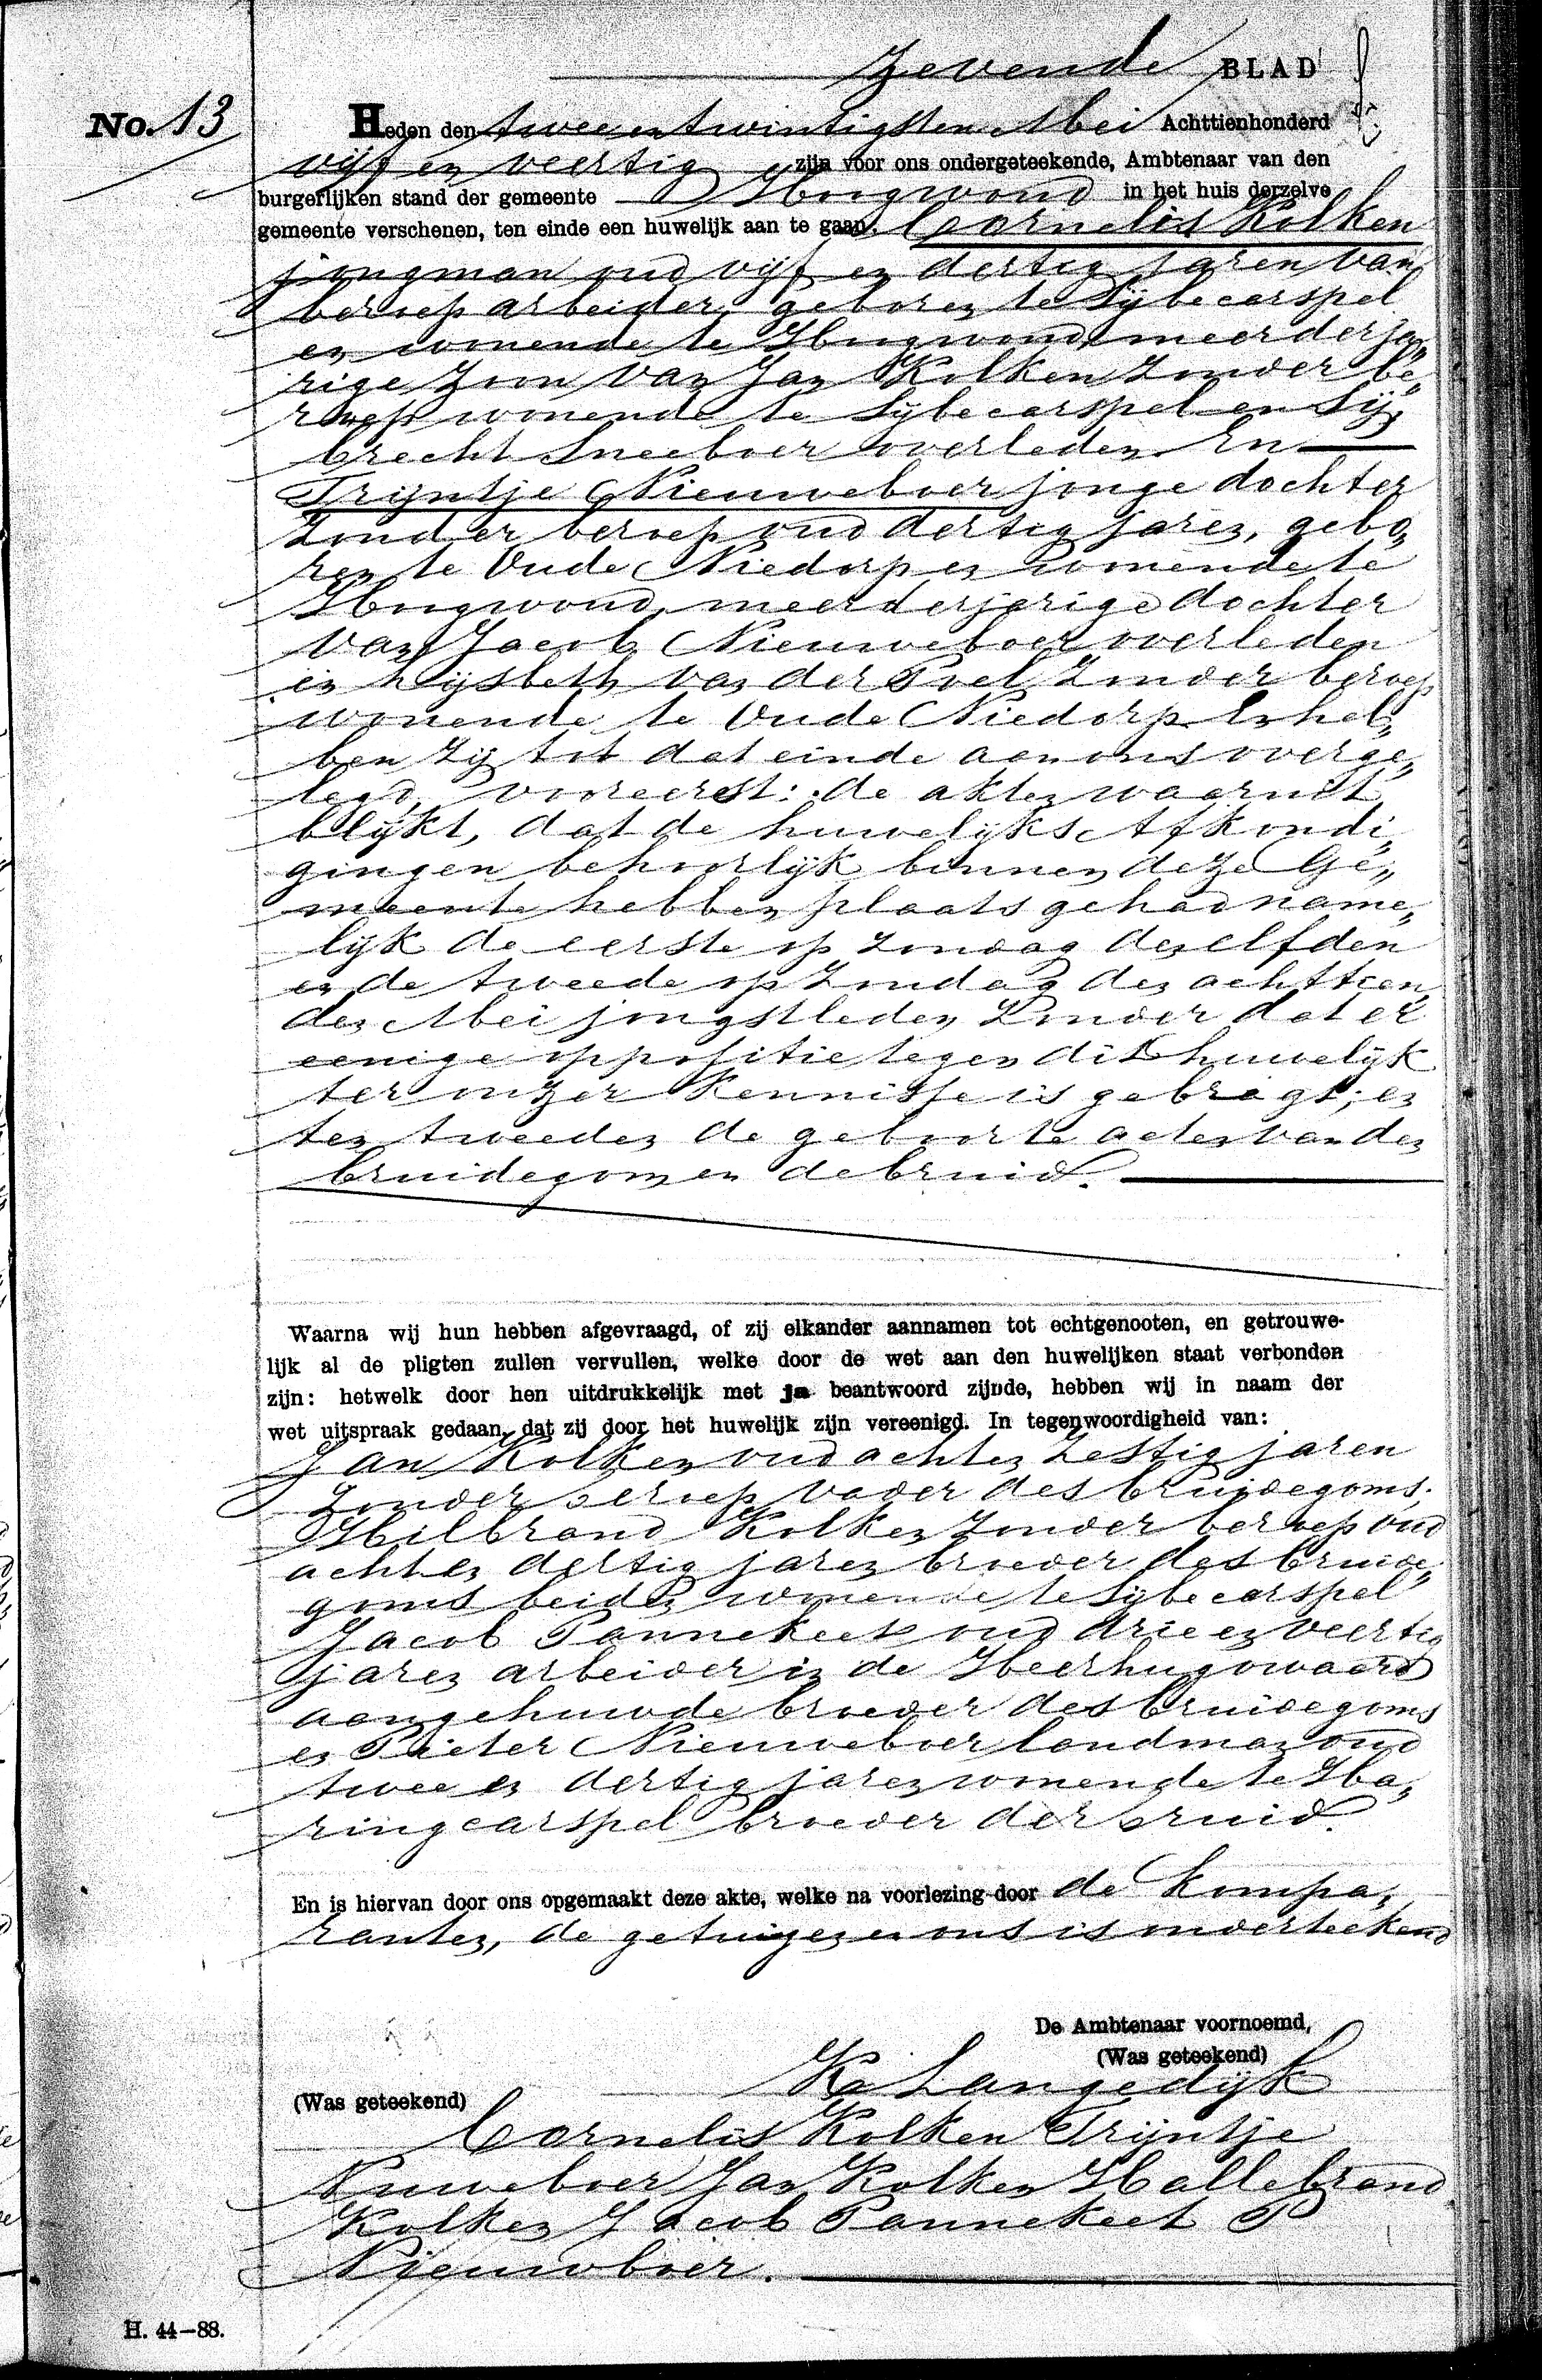 Zevende BLAD
No. 13
Heden den twee en twintigsten Mei Achttienhonderd
vijf en veertig zijn voor ons ondergeteekende, Ambtenaar van den
burgerlijken stand der gemeente Hoogwoud in het huis derzelve
gemeente verschenen, ten einde een huwelijk aan te gaan. Cornelis Kolken
jongman oud vijf en dertig jaren van
beroep arbeider, geboren te Sijbecarspel
en wonende te Hoogwoud, meerderja„
rige zoon van Jan Kolken zonder be„
roep wonende te Sijbecarspel en Sij„
brecht Sneeboer overleden. En
Trijntje Nieuweboer jonge dochter
zonder beroep oud dertig jaren, gebo„
ren te Oude Niedorp en wonende te
Hoogwoud, meerderjarige dochter
van Jacob Nieuweboer overleden
en Lijsbeth van der Poel zonder beroep
wonende te Oude Niedorp En heb„
ben zij tot dat einde aan ons overge„
legd, vooreerst: de akten waaruit
blijkt, dat de huwelijks Afkondi„
gingen behoorlijk binnen deze Ge„
meente hebben plaats gehad name„
lijk de eerste op zondag den elfden
en de tweede op Zondag den achttien
den Mei jongstleden, zonder dat er
eenige oppositie tegen dit huwelijk
ter onzer kennisse is gebragt; en
ten tweeden de geboorte acten van den
bruidegom en de bruid.
Waarna wij hun hebben afgevraagd, of zij elkander aannamen tot echtgenooten, en getrouwe-
lijk al de pligten zullen vervullen, welke door de wet aan den huwelijken staat verbonden
zijn: hetwelk door hen uitdrukkelijk met ja beantwoord zijnde, hebben wij in naam der
wet uitspraak gedaan, dat zij door het huwelijk zijn vereenigd. In tegenwoordigheid van:
Jan Kolken oud acht en zestig jaren
zonder beroep vader des bruidegoms;
Hilbrand Kolken zonder beroep oud
acht en dertig jaren broeder des bruide„
goms beiden wonende te Sijbecarspel
Jacob Pannekeet oud drie en veertig
jaren arbeider in de Heerhugowaard
aangehuwde broeder des bruidegoms
en Pieter Nieuweboer landman oud
twee en dertig jaren wonende te Ha„
ringcarspel broeder der bruid.
En is hiervan door ons opgemaakt deze akte, welke na voorlezing door de kompa„
ranten, de getuigen en ons is onderteekend
De Ambtenaar voornoemd,
(Was geteekend)
K Langedijk
(Was geteekend)
Cornelis Kolken Trijntje
Nuweboer Jan Kolken Hallebrand
Kolken Jacob Pannekeet P
Nieuwboer.
H. 44—88.